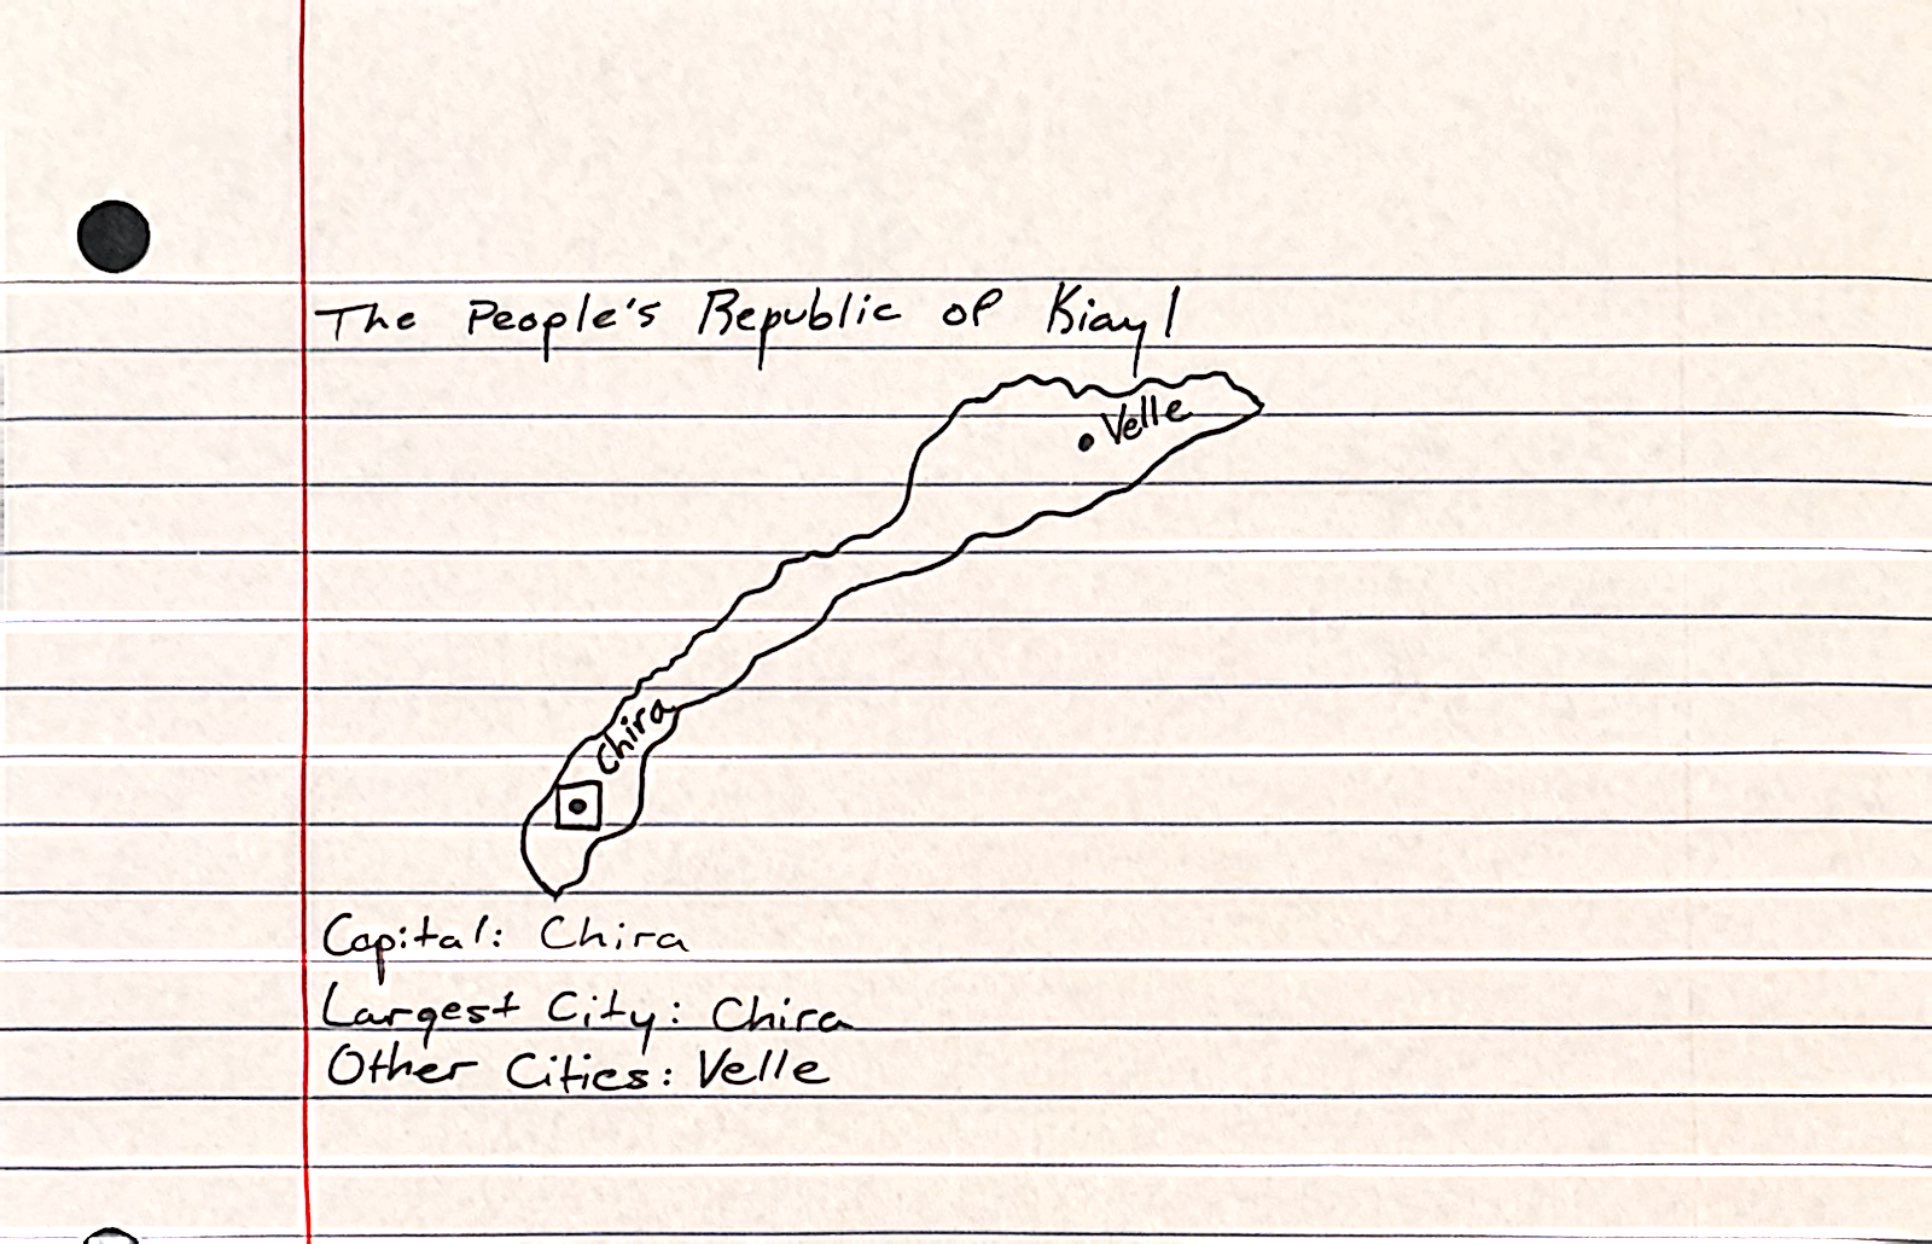 The People's Republic of Kiayl
Velle
Chira
Capital: Chira
Largest City: Chira
Other Cities: Velle